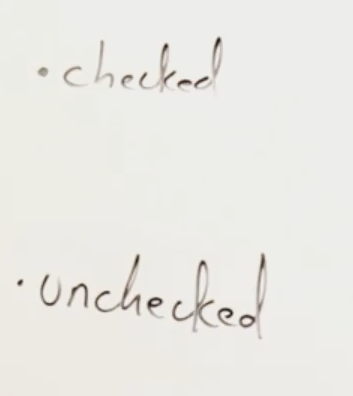 • checked
• unchecked